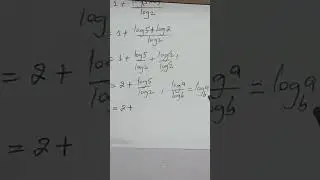 1 + log(...)/log2
= 1 + (log5 + log2)/log2
= 1 + log5/log2 + log2/log2
= 2 + log5/log2 , log a/log b = log_b a
= 2 +
= 2 +
log a/log b = log_b a